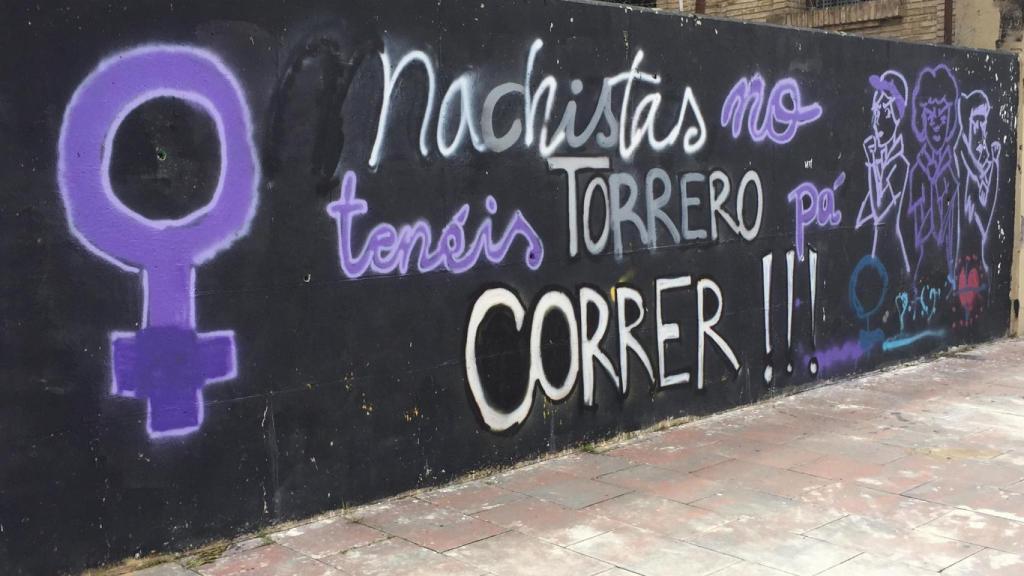 Nachistas no
tenéis TORRERO pá
CORRER !!!